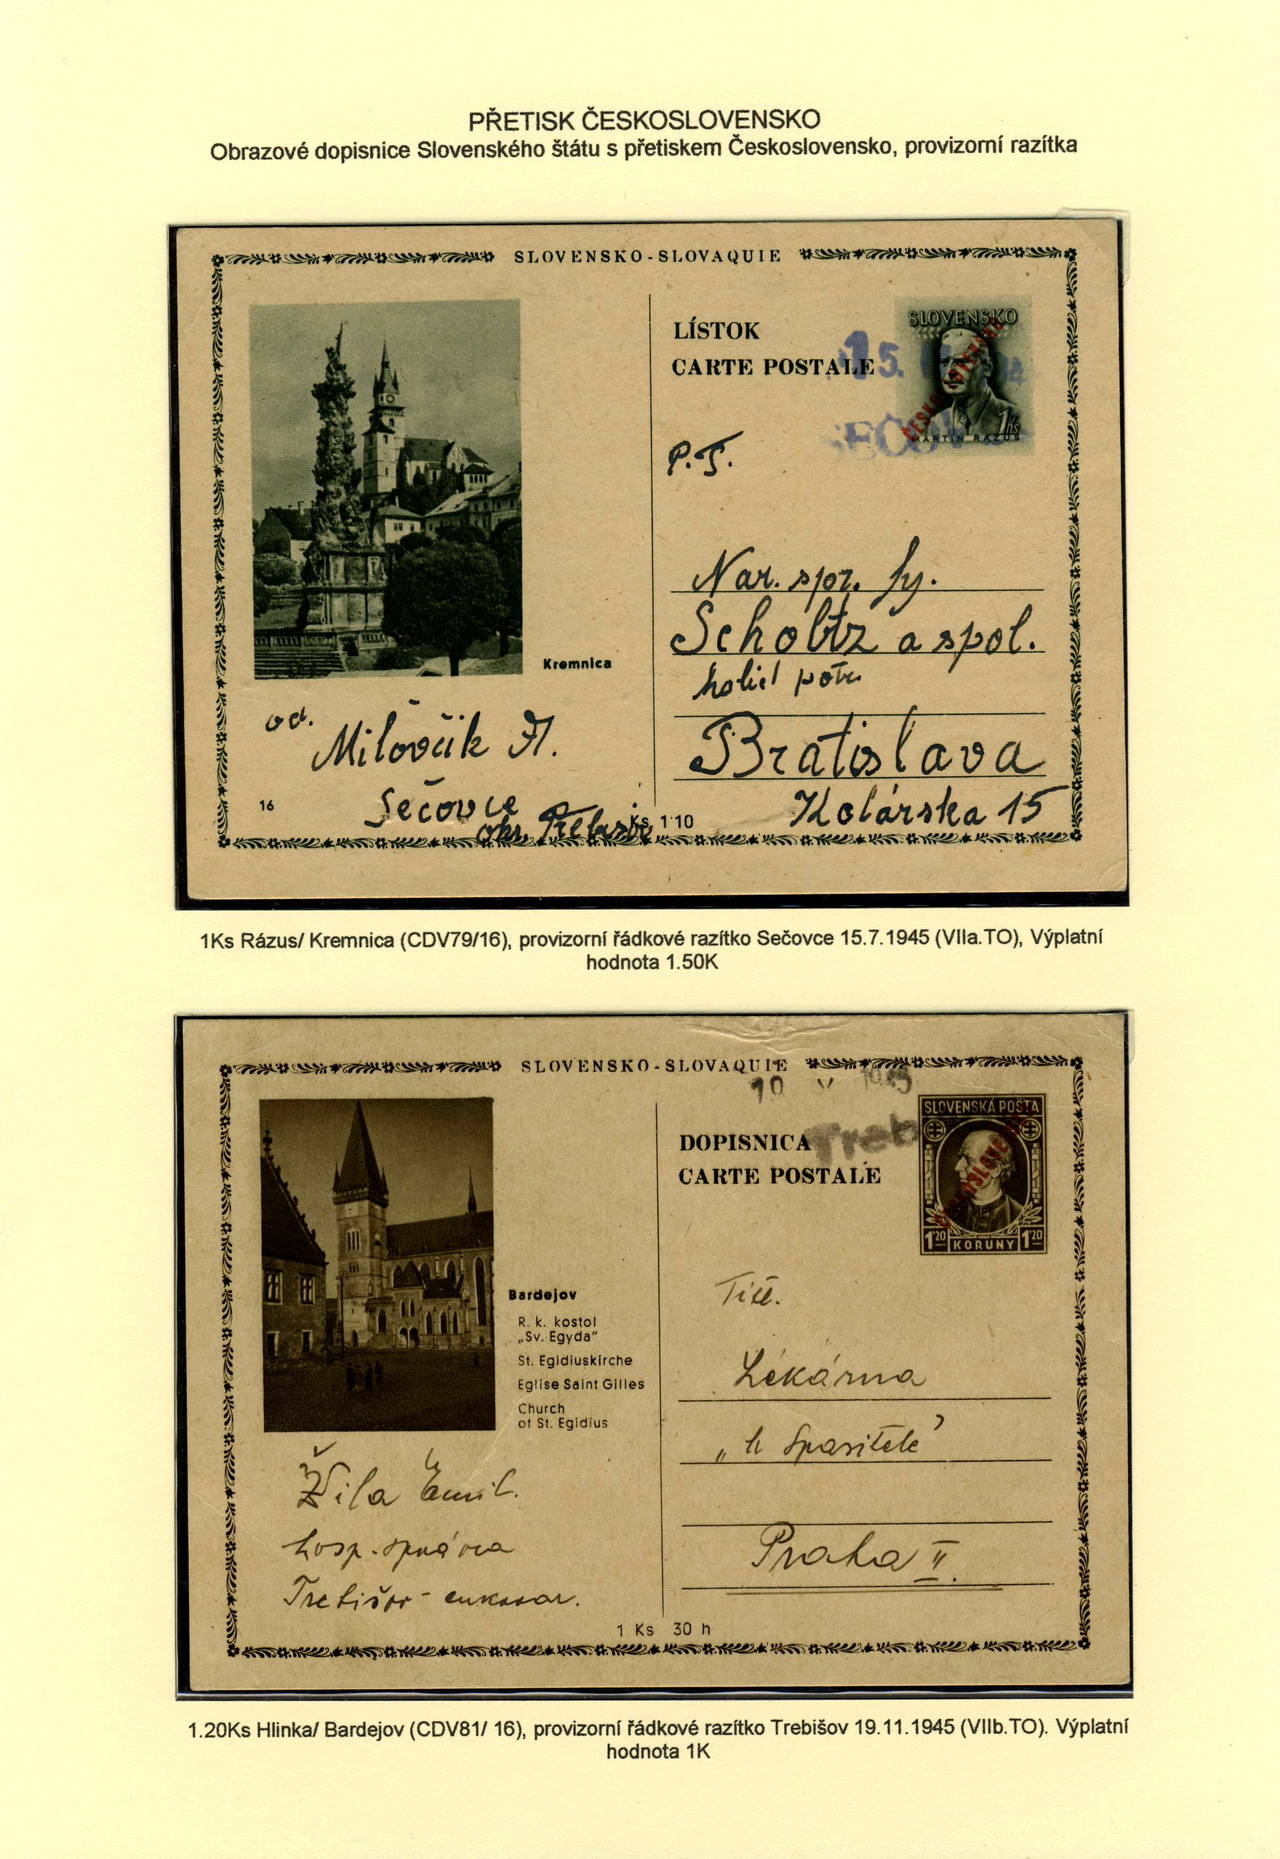 PŘETISK ČESKOSLOVENSKO
Obrazové dopisnice Slovenského štátu s přetiskem Československo, provizorní razítka
SLOVENSKO-SLOVAQUIE
LÍSTOK
CARTE POSTALE
15.
SEČOV
SLOVENSKO
ČESKOSLOVENSKO
1Ks
MARTIN RÁZUS
P.T.
Nar. spr. fy.
Scholtz a spol.
Bratislava
Kolárska 15
Kremnica
od.
Milovčik
Sečovce
okr. Trebišov
16
Ks 1·10
1Ks Rázus/ Kremnica (CDV79/16), provizorní řádkové razítko Sečovce 15.7.1945 (VIIa.TO), Výplatní
hodnota 1.50K
SLOVENSKO-SLOVAQUIE
1945
Treb
DOPISNICA
CARTE POSTALE
SLOVENSKÁ POŠTA
ČESKOSLOVENSKO
1'20 KORUNY 1'20
Titl.
Lékárna
„u Spasitele"
Praha II.
Bardejov
R. k. kostol
„Sv. Egyda"
St. Egidiuskirche
Eglise Saint Gilles
Church
of St. Egidius
Žila Emil.
hosp. správca
Trebišov - cukrovar.
1 Ks 30 h
1.20Ks Hlinka/ Bardejov (CDV81/ 16), provizorní řádkové razítko Trebišov 19.11.1945 (VIIb.TO). Výplatní
hodnota 1K